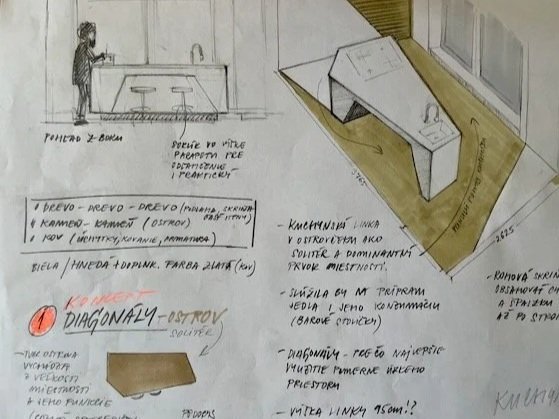 POHĽAD Z BOKU
SOKLÍK VO VÝŠKE
PARAPETU PRE
ODSADENIE
I PRAKTICKÝ
DREVO - DREVO - DREVO (PODLAHA, SKRIŇA
KAMEŇ - KAMEŇ (OSTROV)
KOV (ÚCHYTKY, KOVANIE, ARMATÚRA)
BIELA / HNEDÁ + DOPLNK. FARBA ZLATÁ (KOV)
KONCEPT
1 DIAGONÁLY - OSTROV
SOLITÉR
- TVAR OSTROVA
VYCHÁDZA
Z VEĽKOSTI
MIESTNOSTI
A JEHO FUNKCIE
- KUCHYNSKÁ LINKA
V OSTROVČEKU AKO
SOLITÉR A DOMINANTNÝ
PRVOK MIESTNOSTI.
- SLÚŽILA BY NA PRÍPRAVU
JEDLA I JEHO KONZUMÁCIU
(BAROVÉ STOLIČKY)
- DIAGONÁLY - PREČO NAJLEPŠIE
VYUŽITIE POMERNE ÚZKEHO
PRIESTORU
- VÝŠKA LINKY 95cm!?
2625
- ROHOVÁ SKRIŇ
OBSAHOVAŤ
A ŠPAJZKU
AŽ PO STRO